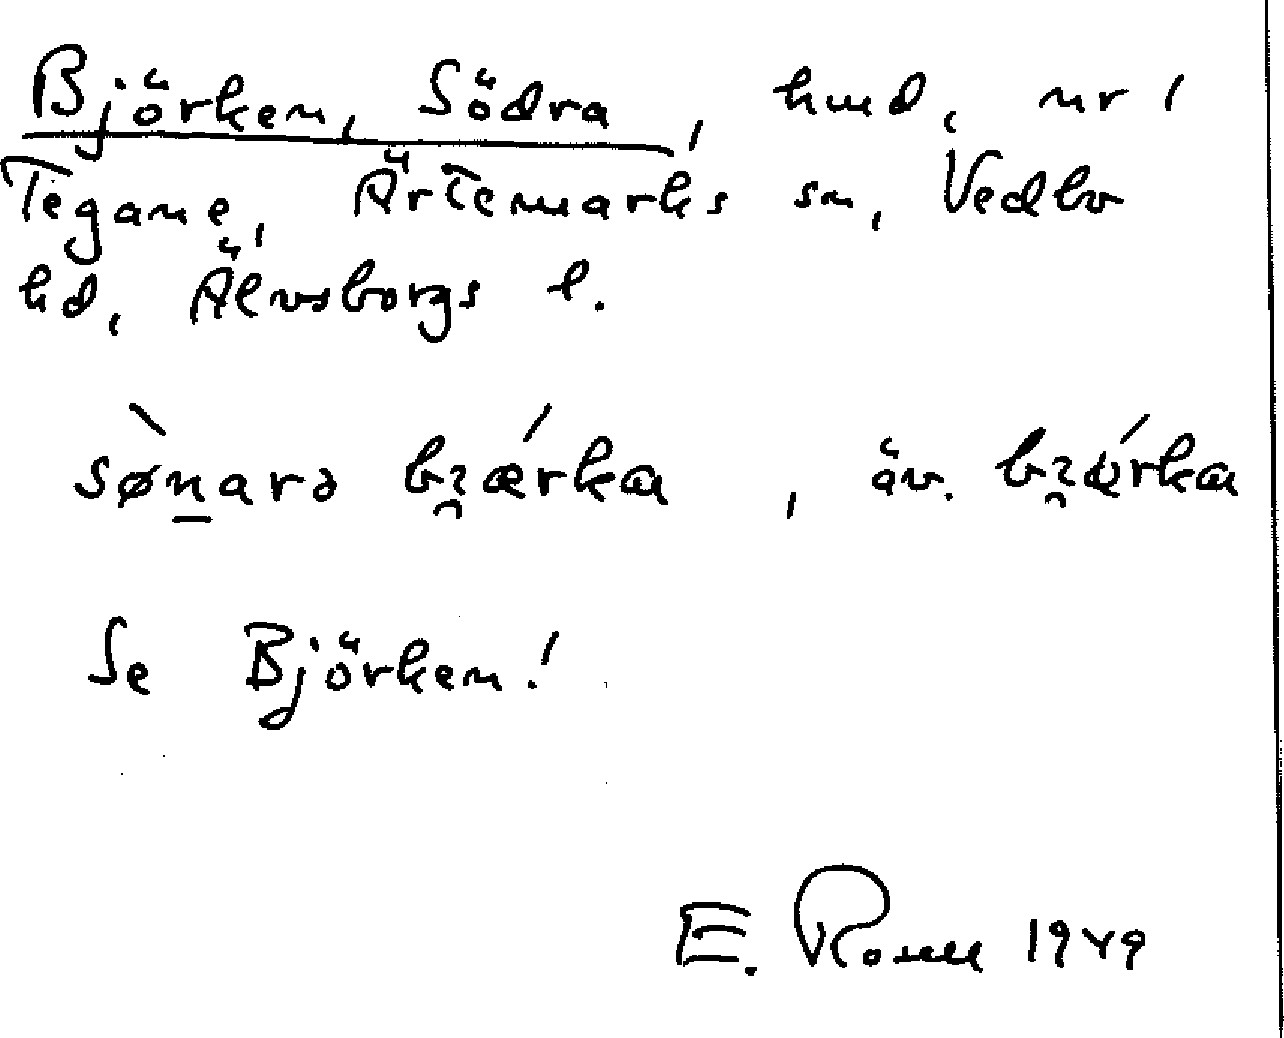 Björken, Södra, hmd, nr 1
Tegane, Ärtemarks sn, Vedbo
hd, Älvsborgs l.
sø̀n̲arə bi̯ǽrka, äv. bi̯ǽrka
Se Björken!
E. 1949